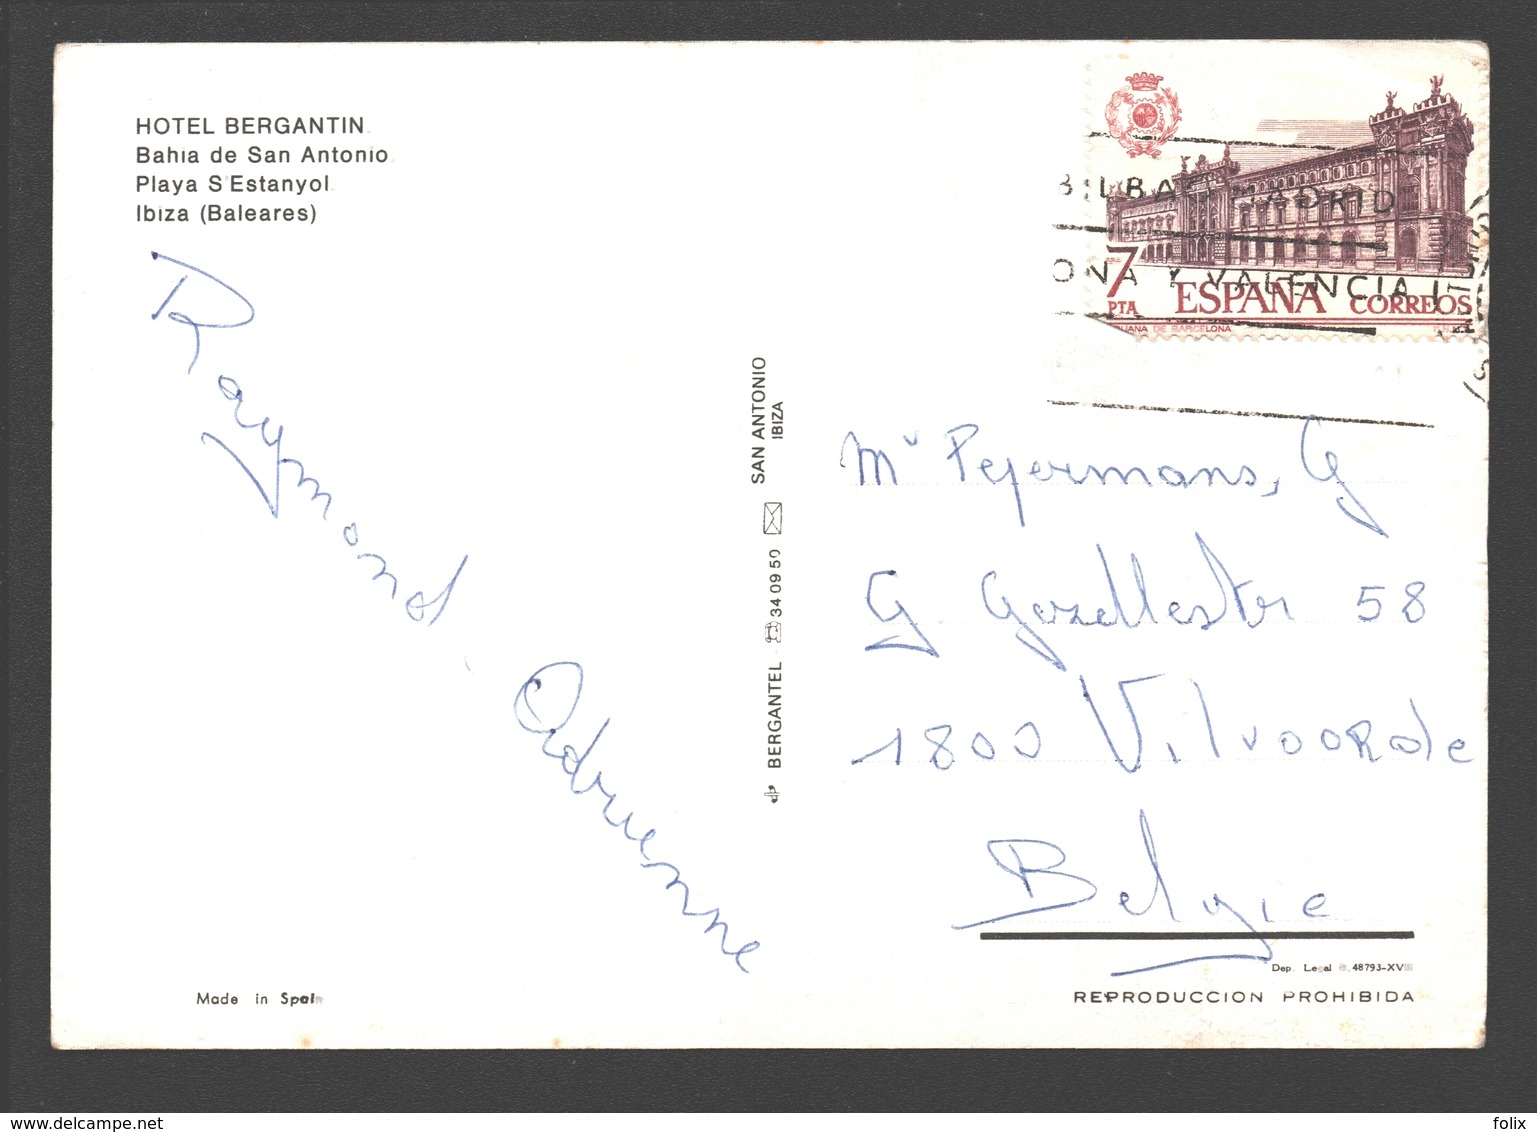 HOTEL BERGANTIN
Bahia de San Antonio
Playa S'Estanyol
Ibiza (Baleares)
Raymond
Adrienne
Made in Spain
BERGANTEL 34 09 50 SAN ANTONIO
IBIZA
BILBAO MADRID
ONA Y VALENCIA
7
PTA
ESPAÑA CORREOS
UANA DE BARCELONA
Mr Pejermans, G
G Gezellestr 58
1800 Vilvoorde
Belgie
Dep. Legal B. 48793-XVIII
REPRODUCCION PROHIBIDA
delcampe.net
folix